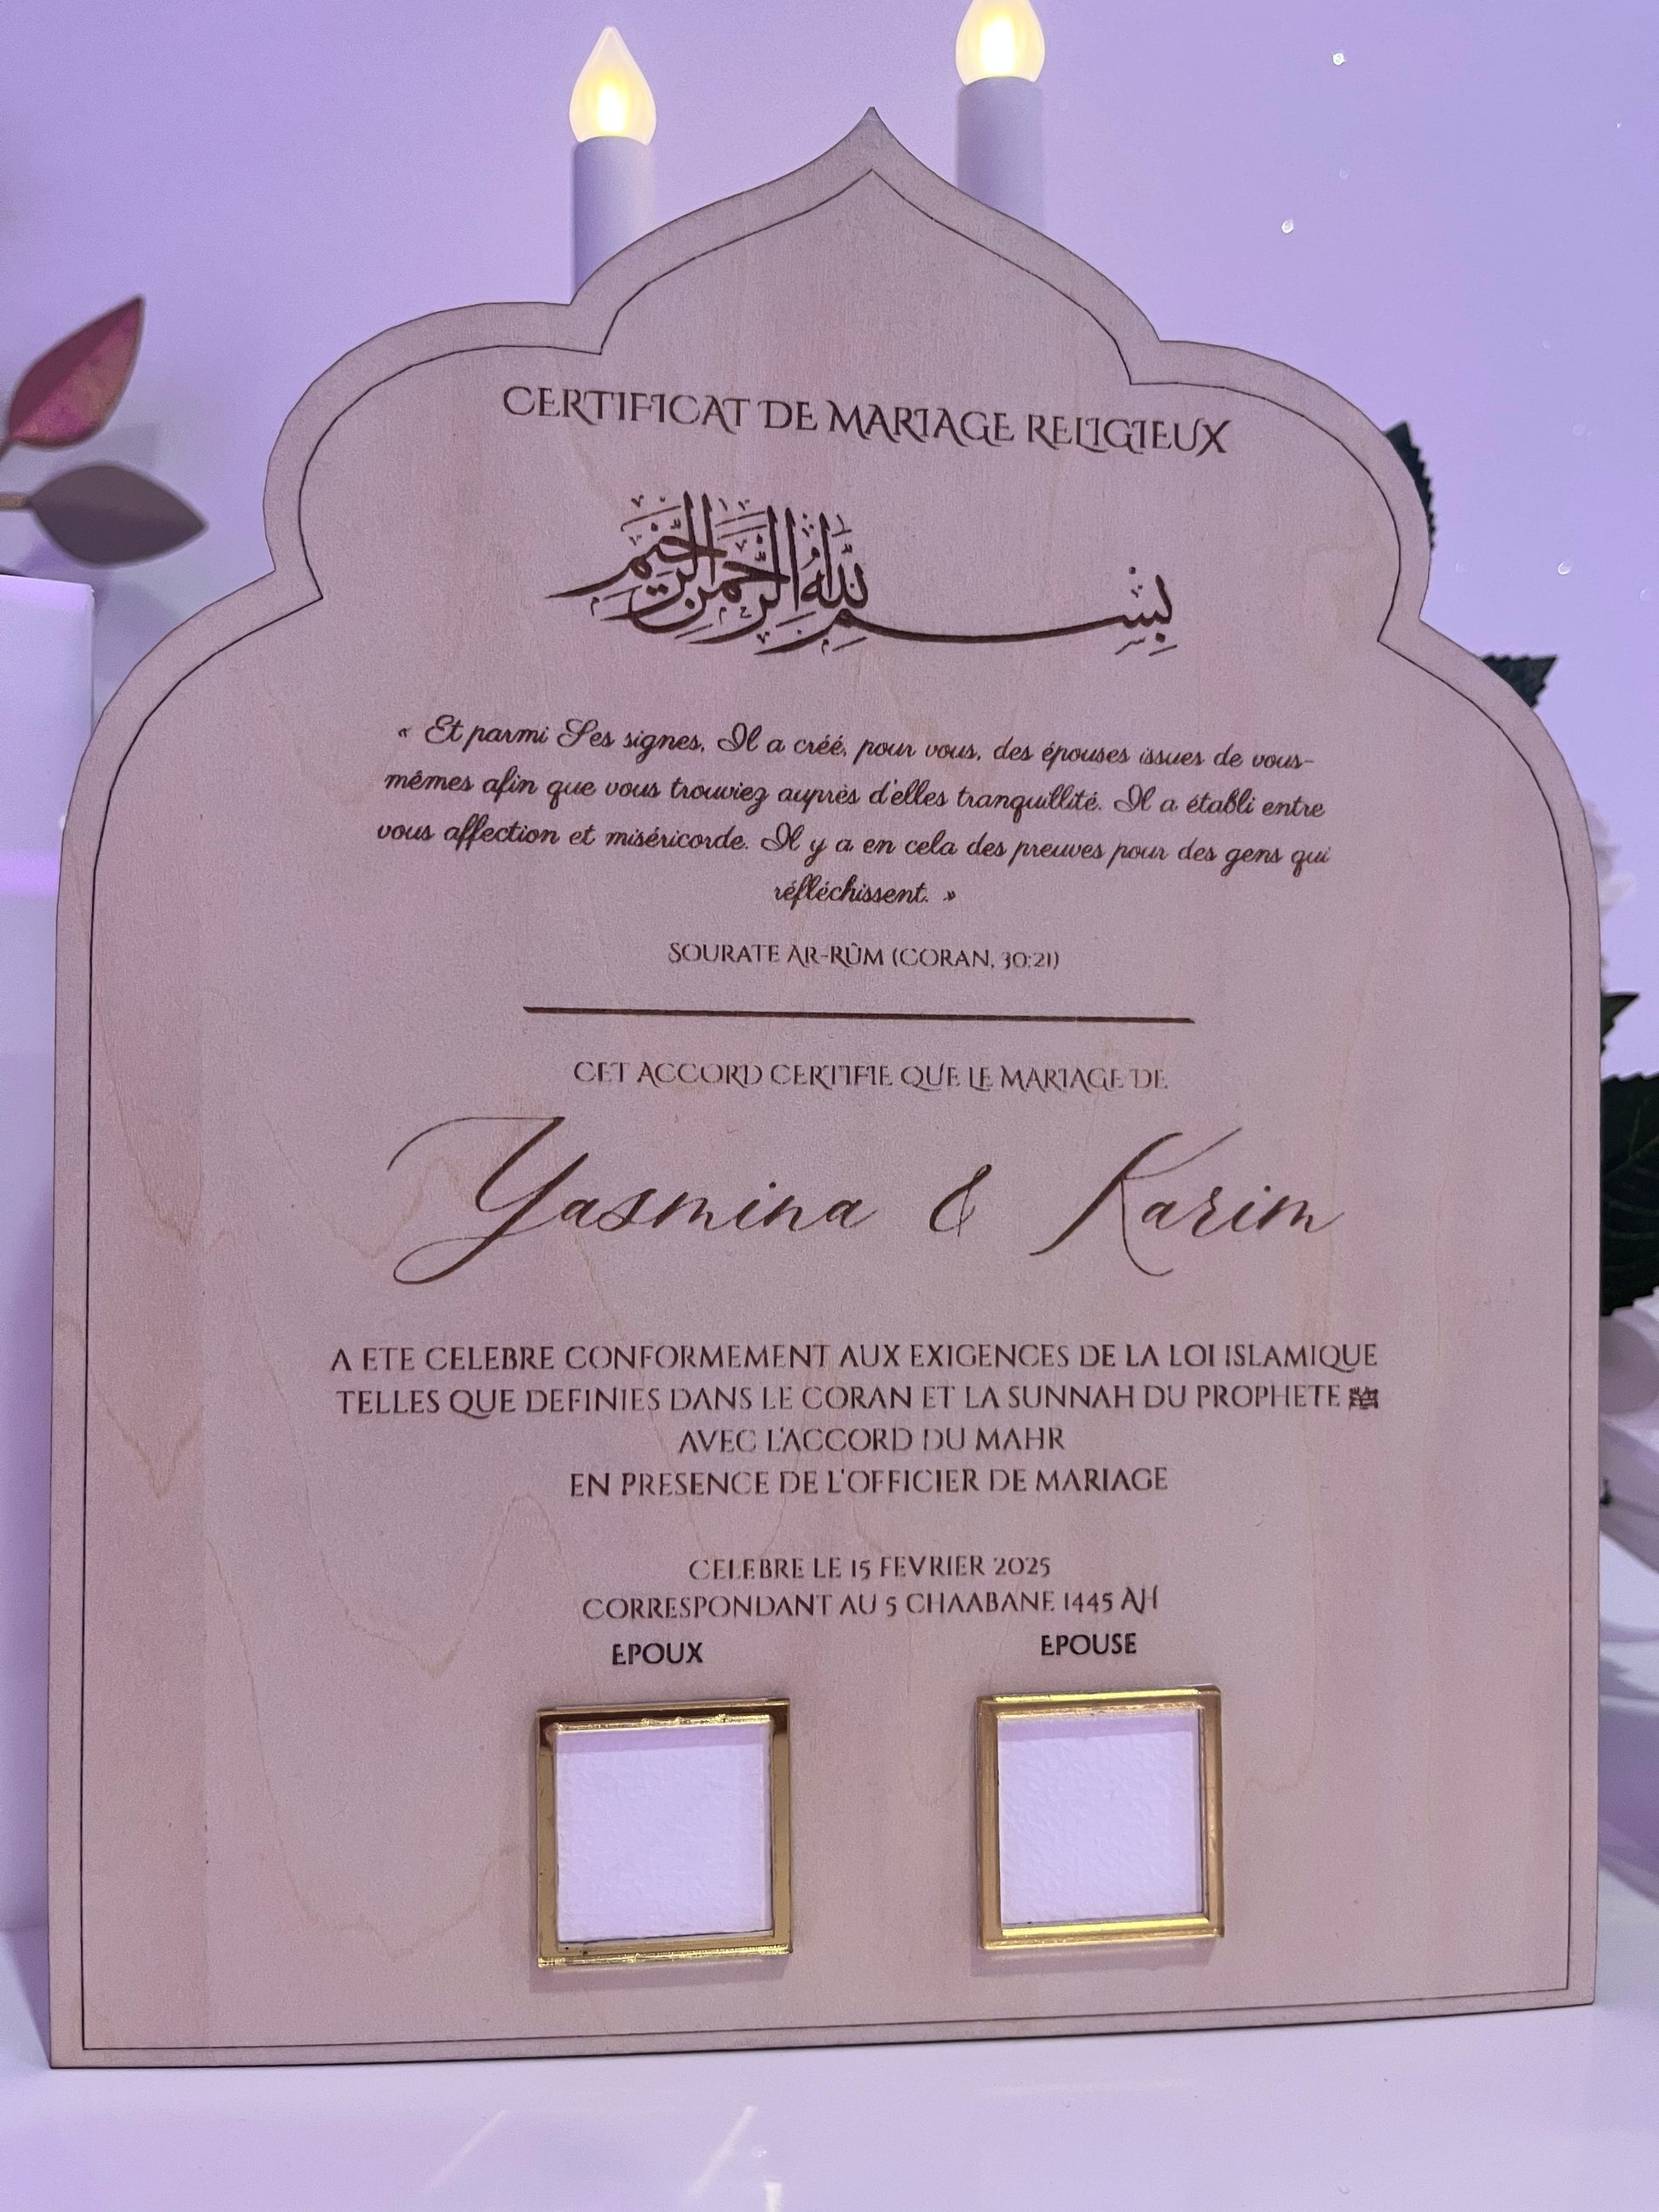 CERTIFICAT DE MARIAGE RELIGIEUX
بسم الله الرحمن الرحيم
« Et parmi Ses signes, Il a créé, pour vous, des épouses issues de vous-
mêmes afin que vous trouviez auprès d'elles tranquillité. Il a établi entre
vous affection et miséricorde. Il y a en cela des preuves pour des gens qui
réfléchissent. »
SOURATE AR-RÛM (CORAN, 30:21)
CET ACCORD CERTIFIE QUE LE MARIAGE DE
Yasmina & Karim
A ETE CELEBRE CONFORMEMENT AUX EXIGENCES DE LA LOI ISLAMIQUE
TELLES QUE DEFINIES DANS LE CORAN ET LA SUNNAH DU PROPHETE ﷺ
AVEC L'ACCORD DU MAHR
EN PRESENCE DE L'OFFICIER DE MARIAGE
CELEBRE LE 15 FEVRIER 2025
CORRESPONDANT AU 5 CHAABANE 1445 AH
EPOUX EPOUSE